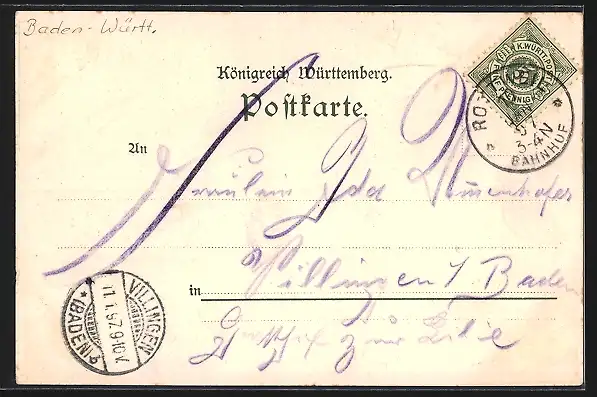 Baden-Württ.
Königreich Württemberg.
Postkarte.
K. WÜRTT. POST
FÜNF
PFENNIG
BAHNHOF
3-4 N
An
Fräulein Ida
in Villingen / Baden
zur Lilie
VILLINGEN
11.1.97. 9-10 V.
*(BADEN)*